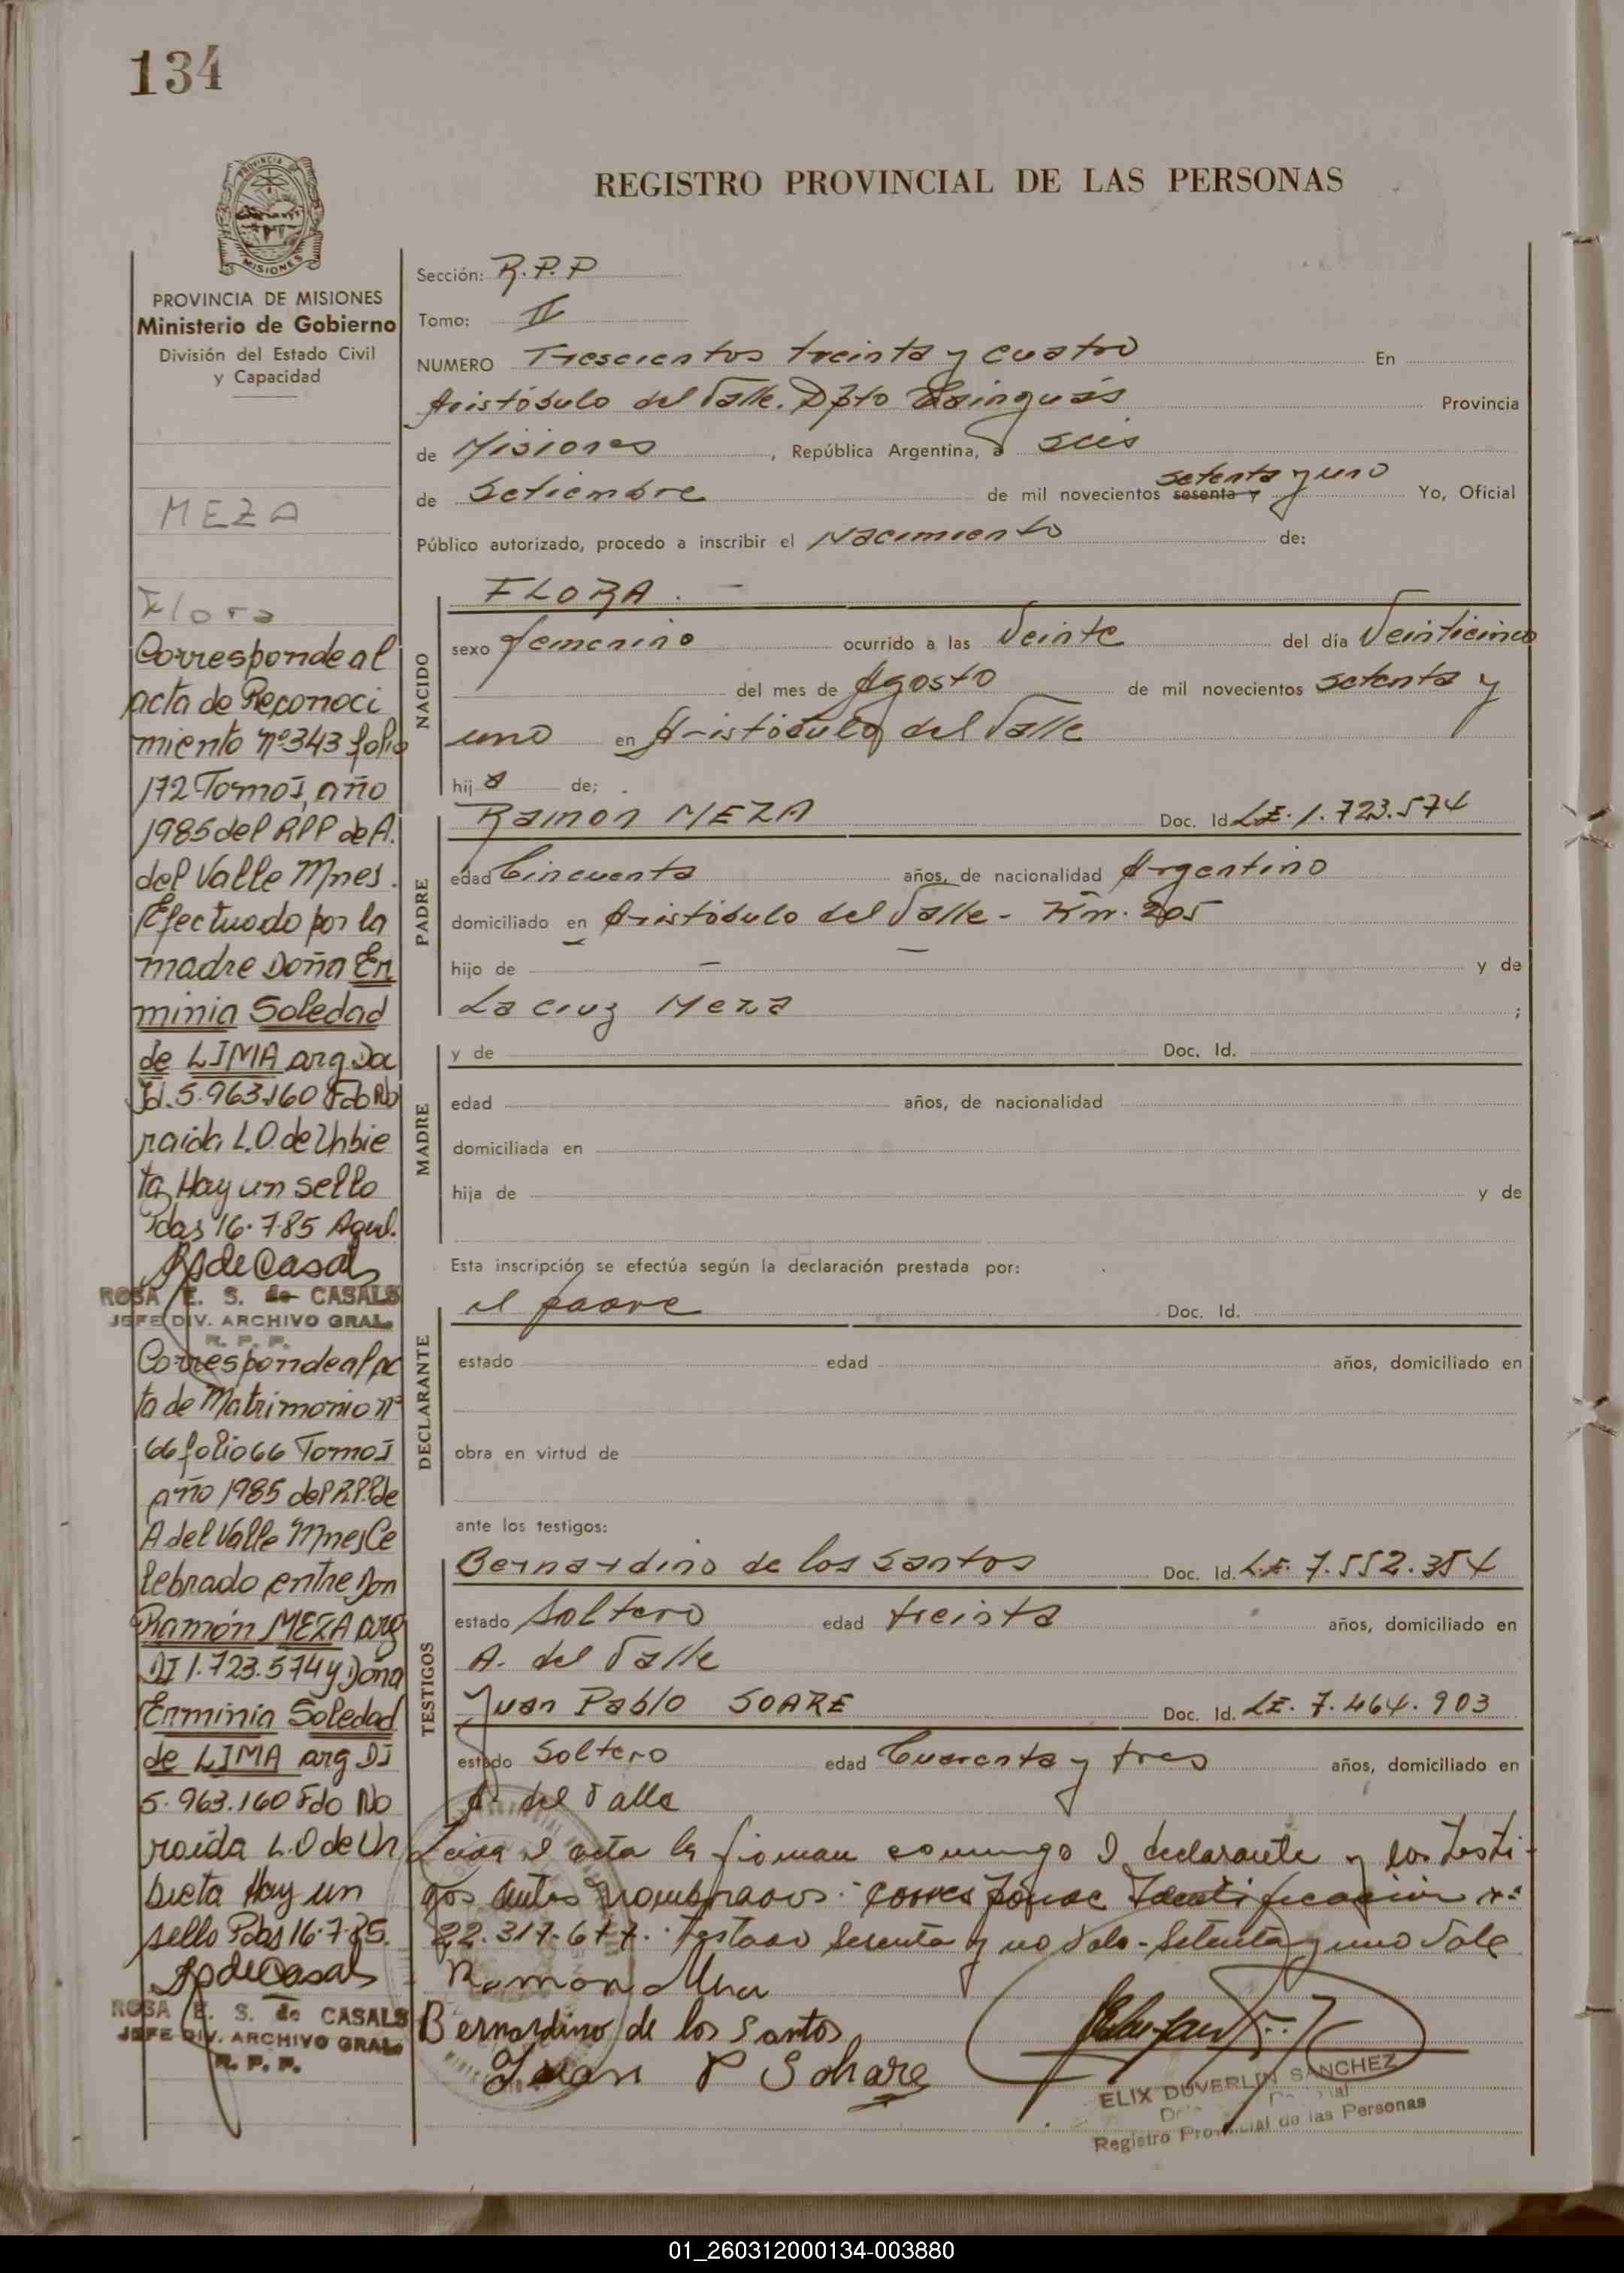 134
PROVINCIA DE
MISIONES
PROVINCIA DE MISIONES
Ministerio de Gobierno
División del Estado Civil
y Capacidad
MEZA
Flora
Corresponde al
acta de Reconoci
miento nº 343 folio
172 Tomo I, año
1985 del RPP de A.
del Valle Mnes.
Efectuado por la
madre Doña Er
minia Soledad
de LIMA arg Doc
Id. 5.963.160 Fdo No
raida L.O. de
Hay un sello
Pdas 16.7.85
ROSA E. S. de CASALS
JEFE DIV. ARCHIVO GRAL.
R. P. P.
Corresponde al Ac
ta de Matrimonio nº
66 folio 66 Tomo I
año 1985 del R.P.P. de
A del Valle Mnes Ce
lebrado entre Don
Ramón MEZA arg
DI 1.723.574 y Doña
Erminia Soledad
de LIMA arg DI
5.963.160 Fdo No
raida L.O de Ur
bieta Hay un
sello Pdas 16.7.85.
ROSA E. S. de CASALS
JEFE DIV. ARCHIVO GRAL.
R. P. P.
REGISTRO PROVINCIAL DE LAS PERSONAS
Sección: R.P.P
Tomo: II
NUMERO Trescientos treinta y cuatro En
Aristóbulo del Valle. Dpto Cainguás Provincia
de Misiones, República Argentina, a seis
de Setiembre de mil novecientos sesenta y setenta y uno Yo, Oficial
Público autorizado, procedo a inscribir el Nacimiento de:
NACIDO
FLORA. -
sexo femenino ocurrido a las Veinte del día Veinticinco
del mes de Agosto de mil novecientos setenta y
uno en Aristóbulo del Valle
hija de;
PADRE
Ramon MEZA Doc. Id. LE. 1.723.574
edad Cincuenta años, de nacionalidad Argentino
domiciliado en Aristóbulo del Valle - Km. 205
hijo de - - y de
La cruz Meza ;
MADRE
y de Doc. Id.
edad años, de nacionalidad
domiciliada en
hija de y de
Esta inscripción se efectúa según la declaración prestada por:
DECLARANTE
el padre Doc. Id.
estado edad años, domiciliado en
obra en virtud de
ante los testigos:
TESTIGOS
Bernardino de los Santos Doc. Id. L.E. 7.552.354
estado Soltero edad treinta años, domiciliado en
A. del Valle
Juan Pablo SOARE Doc. Id. LE. 7.464.903
estado Soltero edad Cuarenta y tres años, domiciliado en
A. del Valle
Leida el acta la firman conmigo el declarante y los testi-
gos antes nombrados. - corresponde Identificacion nº
22.317.677. Testado sesenta y no vale - setenta y uno vale
Ramon Meza
Bernardino de los Santos
Juan P Sohare
ELIX DUVERLIN SANCHEZ
Registro Provincial de las Personas
01_260312000134-003880